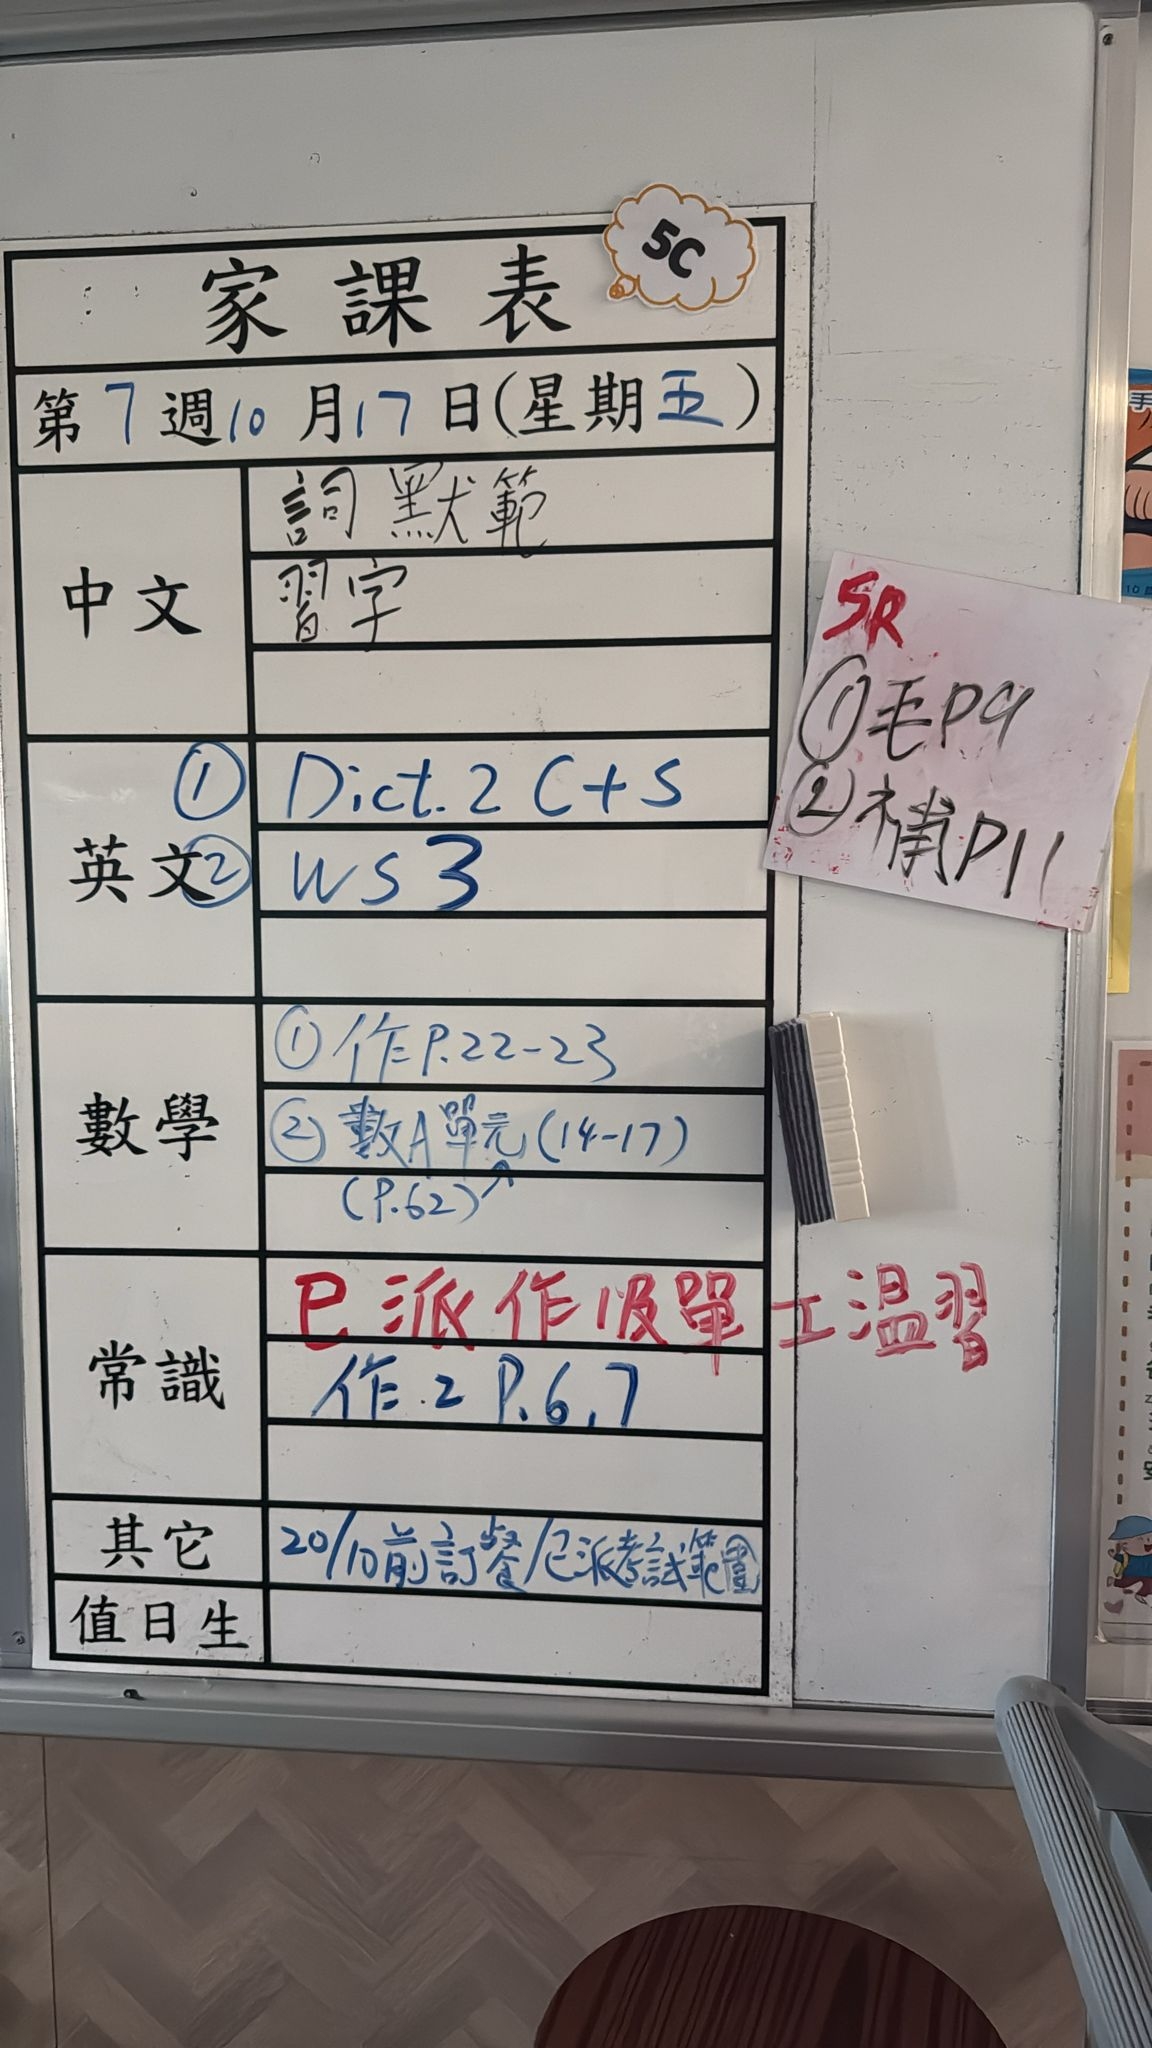 5C
家課表
第7週10月17日(星期五)
中文
詞默範
習字
英文
① Dict. 2 C+S
② WS 3
數學
① 作P.22-23
② 數A單元(14-17)
(P.62)
常識
已派作 單 溫習
作.2 P.6,7
其它
20/10前訂餐/已派考試範圍
值日生
5R
①毛P9
②補P11
手
10